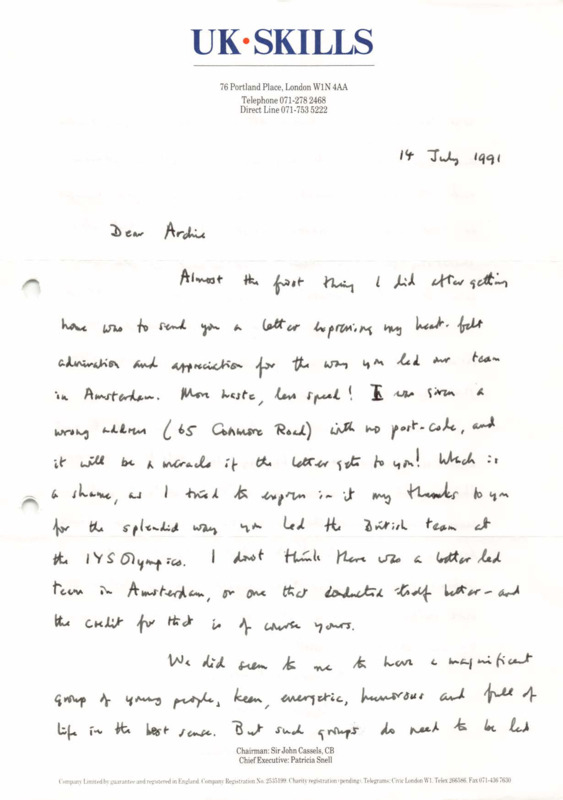 UK·SKILLS
76 Portland Place, London W1N 4AA
Telephone 071-278 2468
Direct Line 071-753 5222
14 July 1991
Dear Archie
Almost the first thing I did after getting
home was to send you a letter expressing my heart-felt
admiration and appreciation for the way you led our team
in Amsterdam. More haste, less speed! I was given a
wrong address (65 Road) with no post-code, and
it will be a miracle if the letter gets to you! Which is
a shame, as I tried to express in it my thanks to you
for the splendid way you led the British team at
the IYS Olympics. I don't think there was a better led
team in Amsterdam, or one that conducted itself better - and
the credit for that is of course yours.
We did seem to me to have a magnificent
group of young people, keen, energetic, humorous and full of
life in the best sense. But such groups do need to be led
Chairman: Sir John Cassels, CB
Chief Executive: Patricia Snell
Company Limited by guarantee and registered in England. Company Registration No. 2535199. Charity registration (pending). Telegrams: Civic London W1. Telex 266586. Fax 071-436 7630